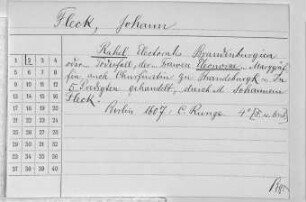 Fleck, Johann
Rahel Electoralis Brandenburgica
oder Todesfall, der Frawen Eleonoren Marggräf-
fin, auch Churfürstin zu Brandeburgk In
5 Predigten gehandelt, durch M. Johannem
Fleck.
Berlin 1607: C. Runge 4°
1 2 3 4
5 6 7 8
9 10 11 12
13 14 15 16
17 18 19 20
21 22 23 24
25 26 27 28
29 30 31 32
33 34 35 36
37 38 39 40